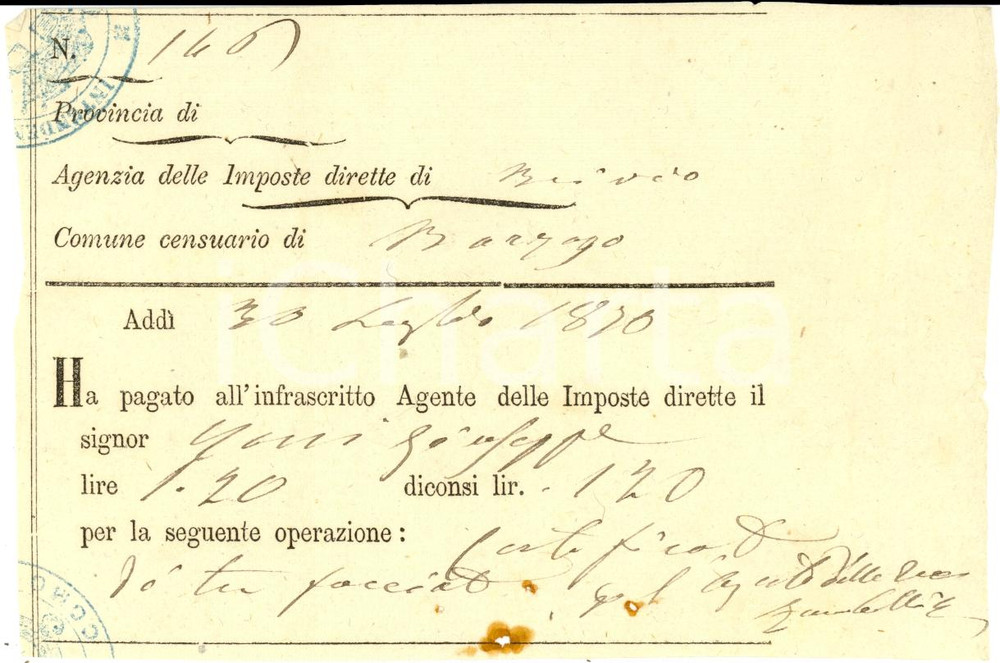 N. 146
Provincia di
Agenzia delle Imposte dirette di Brivio
Comune censuario di Barzago
Addì 30 Luglio 1870
Ha pagato all'infrascritto Agente delle Imposte dirette il
signor Giuseppe
lire 1.20 diconsi lir. 1 20
per la seguente operazione: Certificat
di
iCharta